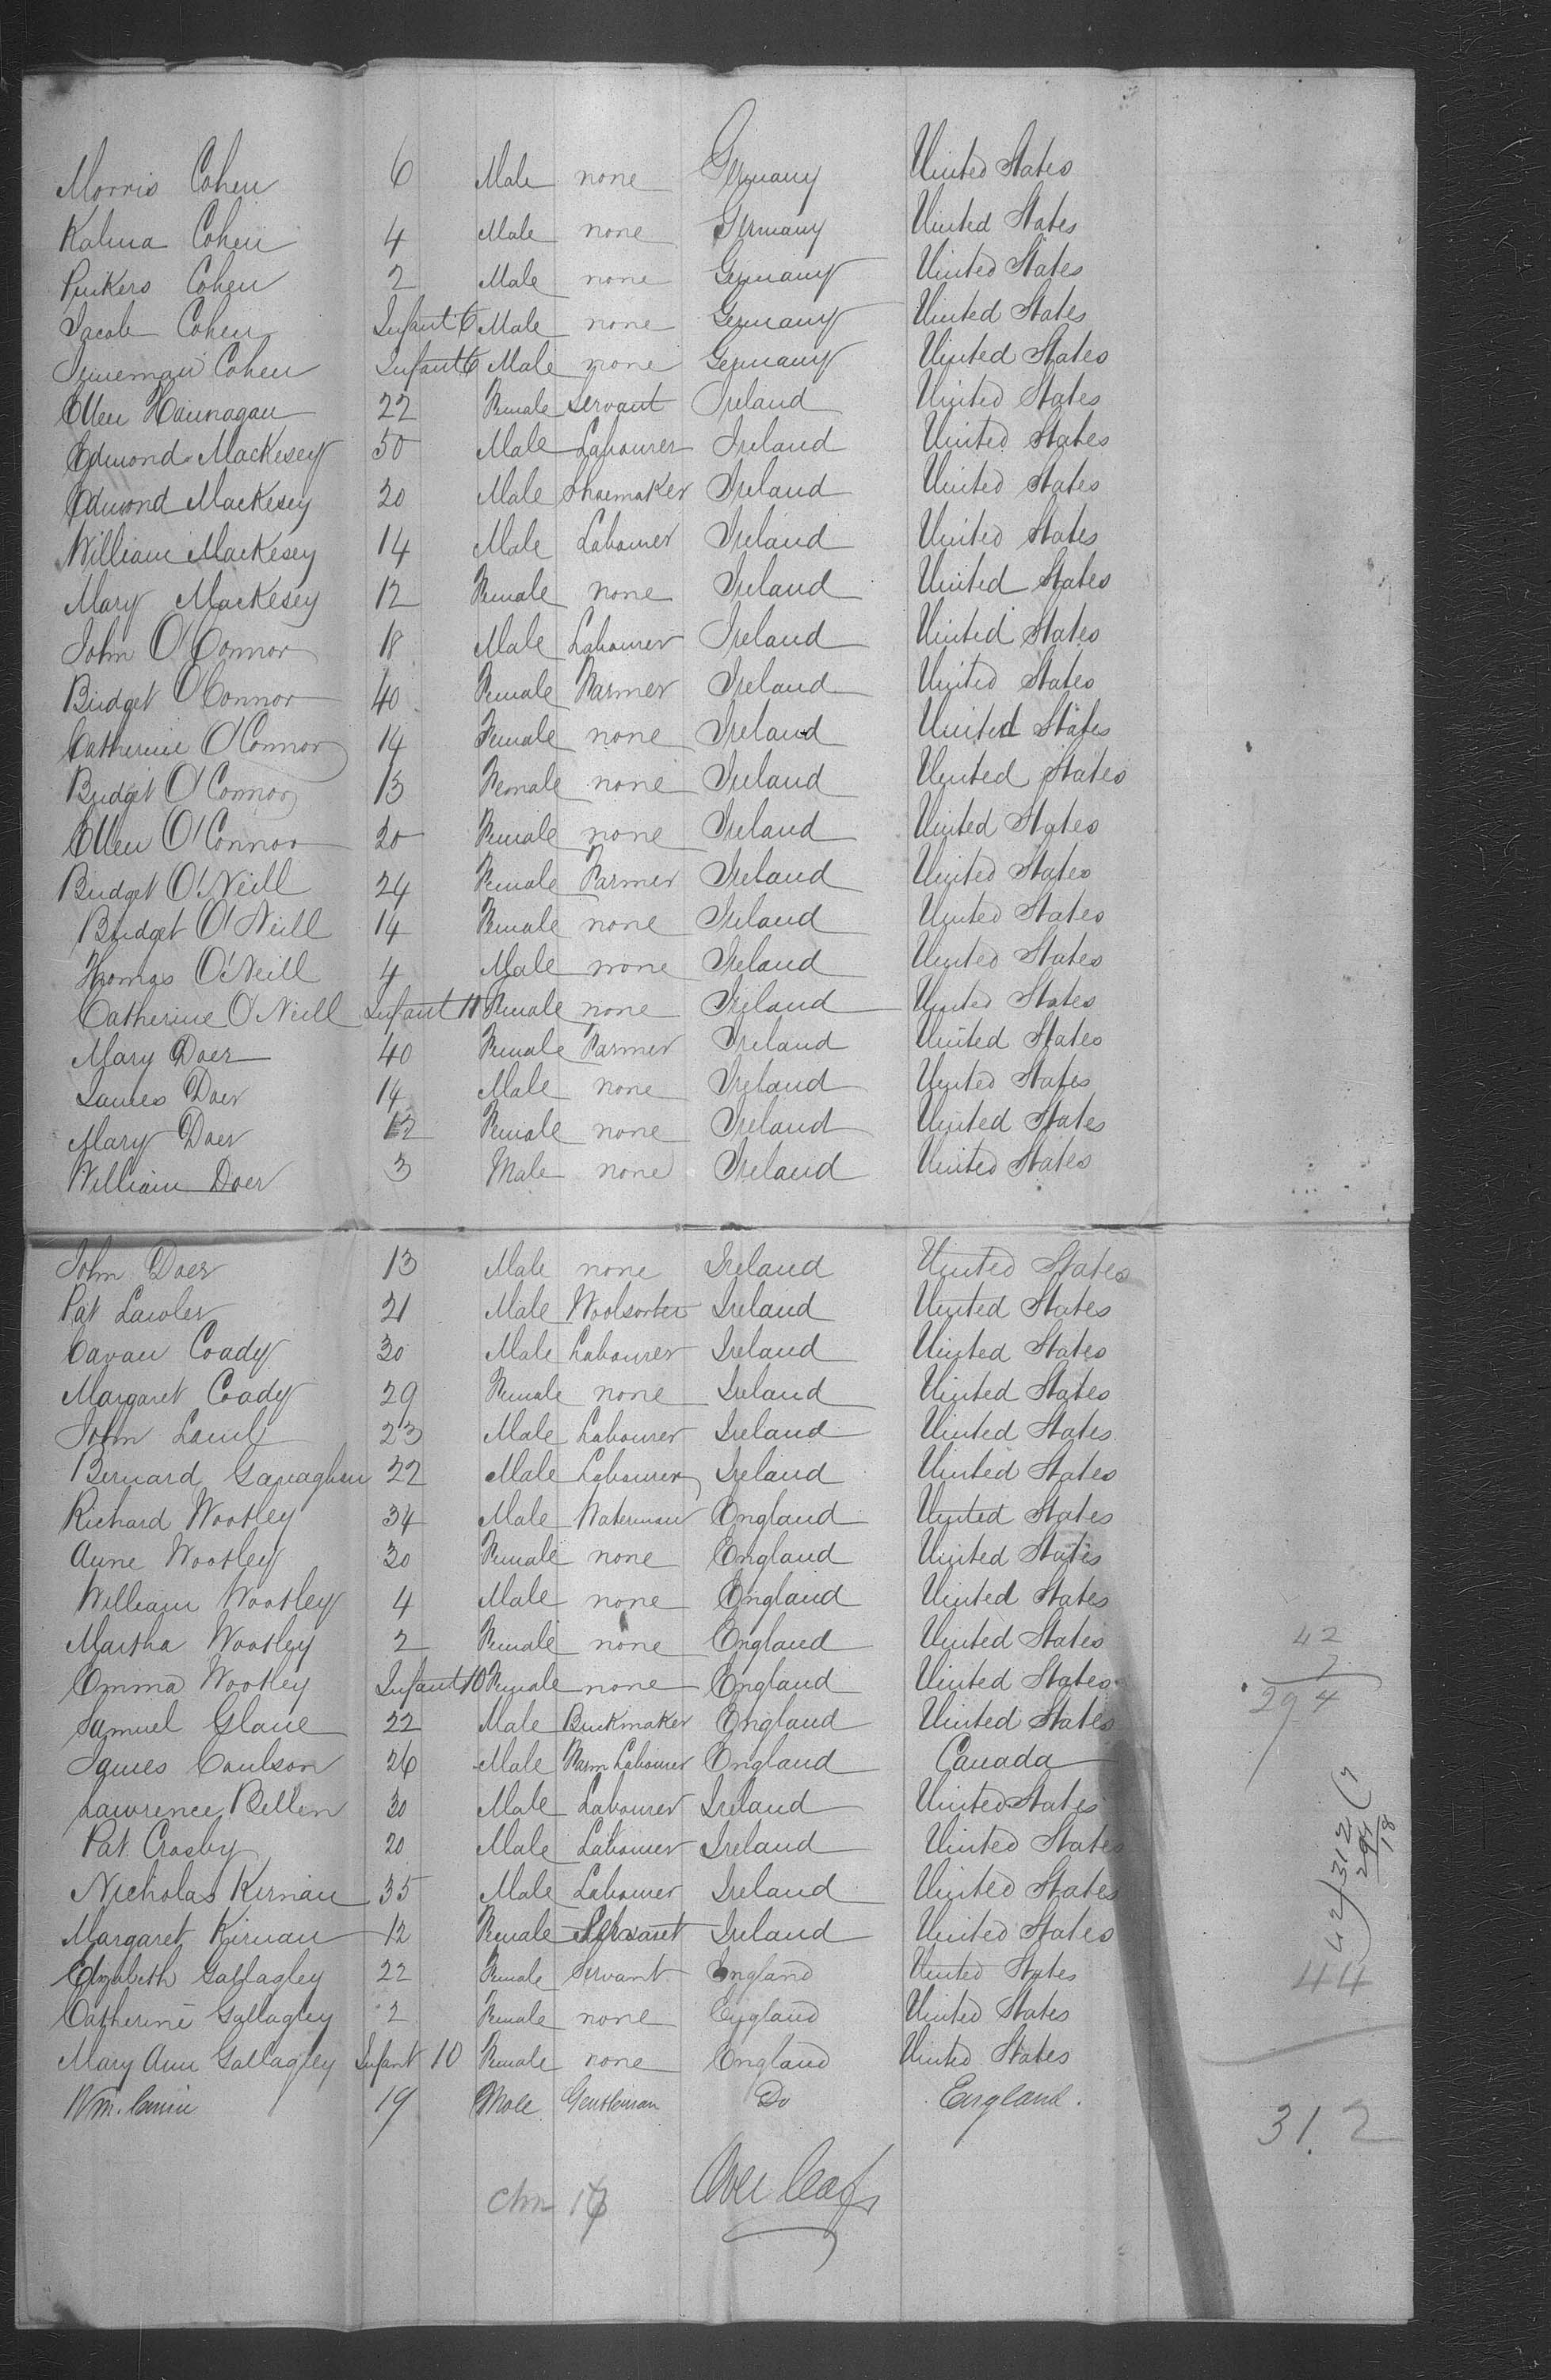 Morris Cohen 6 Male none Germany United States
Kalma Cohen 4 Male none Germany United States
Cohen 2 Male none Germany United States
Jacob Cohen Infant 6 Male none Germany United States
Cohen Infant 6 Male none Germany United States
Ellen Hannagan 22 Female Servant Ireland United States
Edmond Mackesey 50 Male Labourer Ireland United States
Edmond Mackesey 20 Male Shoemaker Ireland United States
William Mackesey 14 Male Labourer Ireland United States
Mary Mackesey 12 Female none Ireland United States
John O'Connor 18 Male Labourer Ireland United States
Bridget O'Connor 40 Female Farmer Ireland United States
Catherine O'Connor 14 Female none Ireland United States
Bridget O'Connor 13 Female none Ireland United States
Ellen O'Connor 20 Female none Ireland United States
Bridget O'Neill 24 Female Farmer Ireland United States
Bridget O'Neill 14 Female none Ireland United States
Thomas O'Neill 4 Male none Ireland United States
Catherine O'Neill Infant 11 Female none Ireland United States
Mary Doer 40 Female Farmer Ireland United States
James Doer 14 Male none Ireland United States
Mary Doer 12 Female none Ireland United States
William Doer 3 Male none Ireland United States
John Doer 13 Male none Ireland United States
Pat Lawler 21 Male Woolsorter Ireland United States
Cavan Coady 30 Male Labourer Ireland United States
Margaret Coady 29 Female none Ireland United States
John 23 Male Labourer Ireland United States
Bernard 22 Male Labourer Ireland United States
Richard Wootley 34 Male Waterman England United States
Anne Wootley 30 Female none England United States
William Wootley 4 Male none England United States
Martha Wootley 2 Female none England United States
Emma Wootley Infant 10 Female none England United States
Samuel Glane 22 Male Brickmaker England United States
James Coulson 26 Male Farm Labourer England Canada
Lawrence Bellen 30 Male Labourer Ireland United States
Pat. Crosby 20 Male Labourer Ireland United States
Nicholas Kirnan 35 Male Labourer Ireland United States
Margaret Kirnan 12 Female Servant Ireland United States
Elizabeth Gallagley 22 Female Servant England United States
Catherine Gallagley 2 Female none England United States
Mary Ann Gallagley Infant 10 Female none England United States
Wm. 19 Male Gentleman Do England.
Over leaf
42
7
294
42)312(7
294
18
44
312